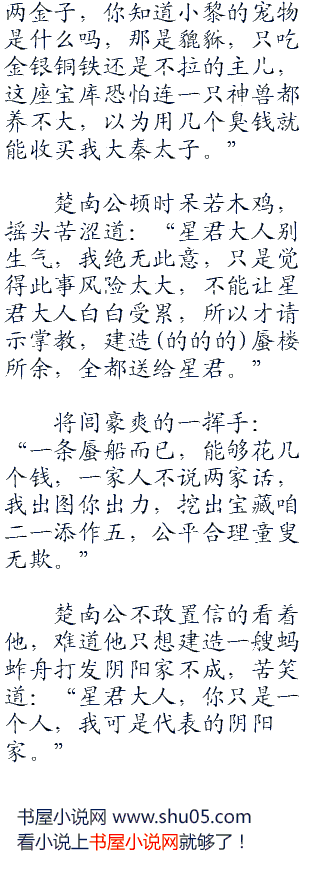 两金子，你知道小黎的宠物
是什么吗，那是貔貅，只吃
金银铜铁还是不拉的主儿，
这座宝库恐怕连一只神兽都
养不大，以为用几个臭钱就
能收买我大秦太子。”
楚南公顿时呆若木鸡，
摇头苦涩道：“星君大人别
生气，我绝无此意，只是觉
得此事风险太大，不能让星
君大人白白受累，所以才请
示掌教，建造(的的的)蜃楼
所余，全都送给星君。”
将闾豪爽的一挥手：
“一条蜃船而已，能够花几
个钱，一家人不说两家话，
我出图你出力，挖出宝藏咱
二一添作五，公平合理童叟
无欺。”
楚南公不敢置信的看着
他，难道他只想建造一艘蚂
蚱舟打发阴阳家不成，苦笑
道：“星君大人，你只是一
个人，我可是代表的阴阳
家。”
书屋小说网 www.shu05.com
看小说上书屋小说网就够了！